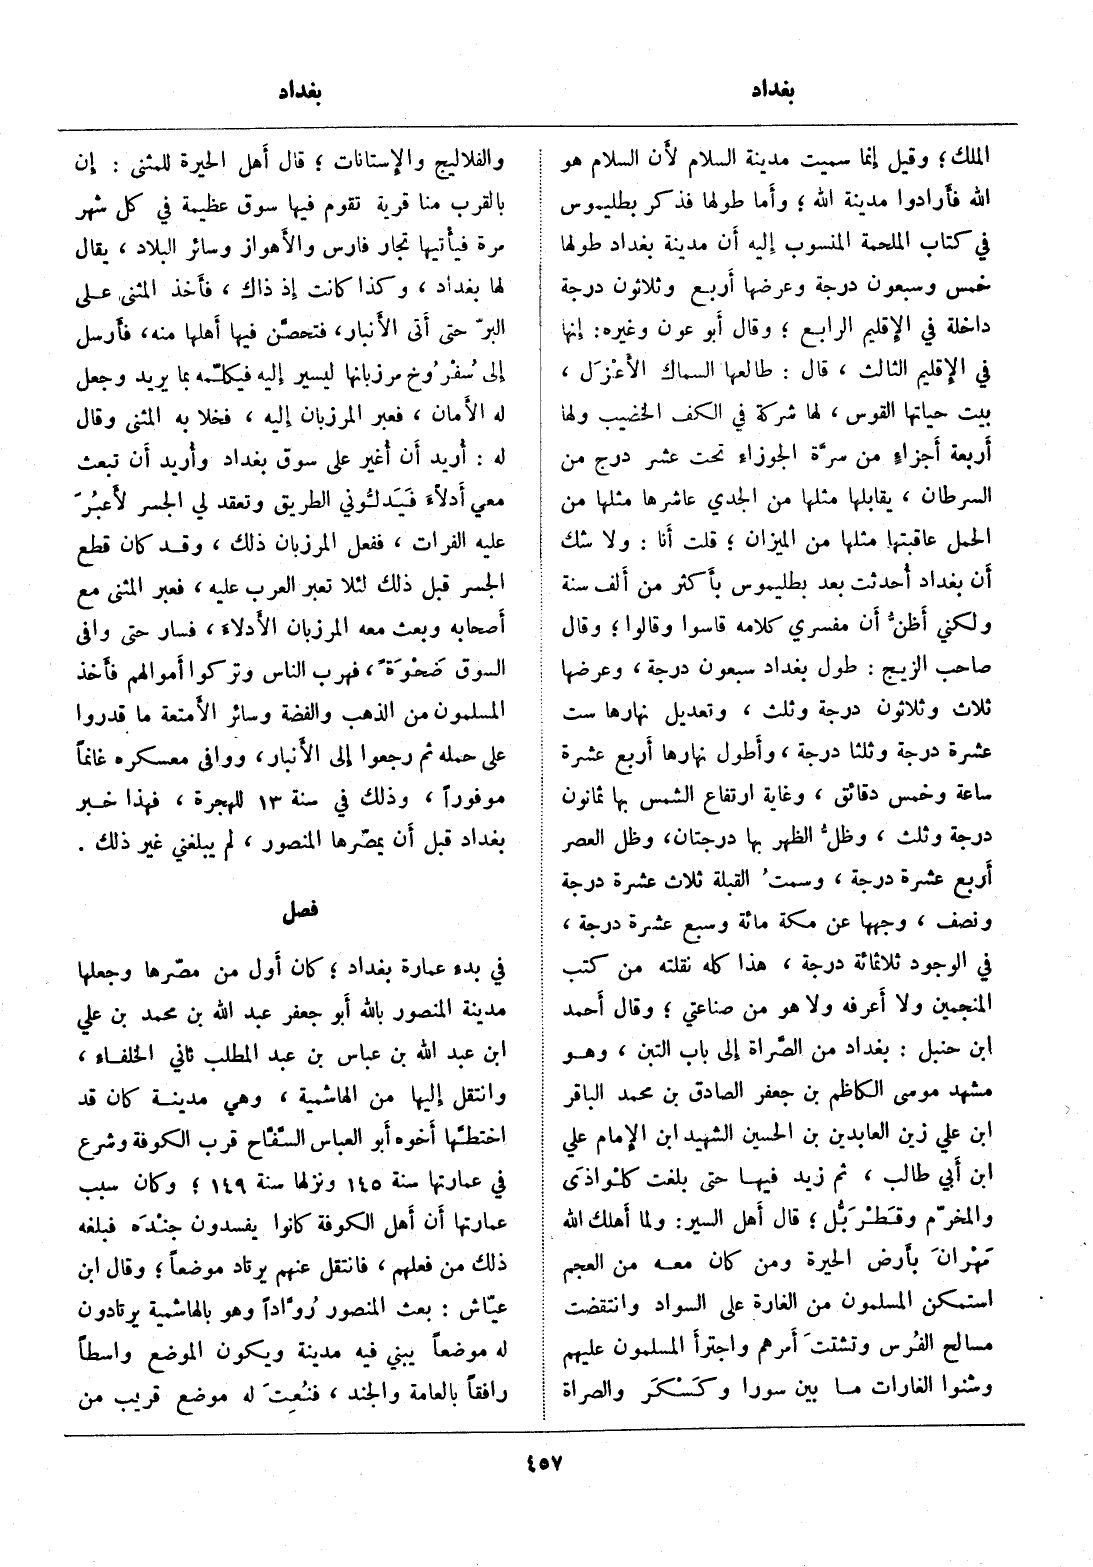 بغداد
بغداد
الملك؛ وقيل إنما سميت مدينة السلام لأن السلام هو
الله فأرادوا مدينة الله؛ وأما طولها فذكر بطليموس
في كتاب الملحمة المنسوب إليه أن مدينة بغداد طولها
خمس وسبعون درجة وعرضها أربع وثلاثون درجة
داخلة في الإقليم الرابع؛ وقال أبو عون وغيره: إنها
في الإقليم الثالث، قال: طالعها السماك الأعْزَل،
بيت حياتها القوس، لها شركة في الكف الخضيب ولها
أربعة أجزاءٍ من سرَّة الجوزاء تحت عشر درج من
السرطان، يقابلها مثلها من الجدي عاشرها مثلها من
الحمل عاقبتها مثلها من الميزان؛ قلت أنا: ولا شك
أن بغداد أُحدثت بعد بطليموس بأكثر من ألف سنة
ولكني أظنُّ أن مفسري كلامه قاسوا وقالوا؛ وقال
صاحب الزيج: طول بغداد سبعون درجة، وعرضها
ثلاث وثلاثون درجة وثلث، وتعديل نهارها ست
عشرة درجة وثلثا درجة، وأطول نهارها أربع عشرة
ساعة وخمس دقائق، وغاية ارتفاع الشمس بها ثمانون
درجة وثلث، وظلُّ الظهر بها درجتان، وظل العصر
أربع عشرة درجة، وسمتُ القبلة ثلاث عشرة درجة
ونصف، وجهها عن مكة مائة وسبع عشرة درجة،
في الوجود ثلاثمائة درجة، هذا كله نقلته من كتب
المنجمين ولا أعرفه ولا هو من صناعتي؛ وقال أحمد
ابن حنبل: بغداد من الصَّراة إلى باب التبن، وهو
مشهد موسى الكاظم بن جعفر الصادق بن محمد الباقر
ابن علي زين العابدين بن الحسين الشهيد ابن الإمام علي
ابن أبي طالب، ثم زيد فيها حتى بلغت كلْواذَى
والمخرّم وقَطْرَبُّل؛ قال أهل السير: ولما أهلك الله
مَهْرانَ بأرض الحيرة ومن كان معه من العجم
استمكن المسلمون من الغارة على السواد وانتقضت
مسالح الفُرس وتشتتَ أمرهم واجترأ المسلمون عليهم
وشنوا الغارات ما بين سورا وكَسْكَر والصراة
والفلاليج والإستانات؛ قال أهل الحيرة للمثنى: إن
بالقرب منا قرية تقوم فيها سوق عظيمة في كل شهر
مرة فيأتيها تجار فارس والأهواز وسائر البلاد، يقال
لها بغداد، وكذا كانت إذ ذاك، فأخذ المثنى على
البرّ حتى أتى الأنبار، فتحصّن فيها أهلها منه، فأرسل
إلى سُفْرُوخ مرزبانها ليسير إليه فيكلّمه بما يريد وجعل
له الأمان، فعبر المرزبان إليه، فخلا به المثنى وقال
له: أُريد أن أُغير على سوق بغداد وأُريد أن تبعث
معي أدلاّء فَيَدلُّوني الطريق وتعقد لي الجسر لأعبُرَ
عليه الفرات، ففعل المرزبان ذلك، وقد كان قطع
الجسر قبل ذلك لئلا تعبر العرب عليه، فعبر المثنى مع
أصحابه وبعث معه المرزبان الأدلاء، فسار حتى وافى
السوق ضَحْوَةً، فهرب الناس وتركوا أموالهم فأخذ
المسلمون من الذهب والفضة وسائر الأمتعة ما قدروا
على حمله ثم رجعوا إلى الأنبار، ووافى معسكره غانماً
موفوراً، وذلك في سنة ١٣ للهجرة، فهذا خبر
بغداد قبل أن يمصّرها المنصور، لم يبلغني غير ذلك.
فصل
في بدء عمارة بغداد؛ كان أول من مصّرها وجعلها
مدينة المنصور بالله أبو جعفر عبد الله بن محمد بن علي
ابن عبد الله بن عباس بن عبد المطلب ثاني الخلفاء،
وانتقل إليها من الهاشمية، وهي مدينة كان قد
اختطّها أخوه أبو العباس السّفّاح قرب الكوفة وشرع
في عمارتها سنة ١٤٥ ونزلها سنة ١٤٩؛ وكان سبب
عمارتها أن أهل الكوفة كانوا يفسدون جنْدَه فبلغه
ذلك من فعلهم، فانتقل عنهم يرتاد موضعاً؛ وقال ابن
عيّاش: بعث المنصور رُوَّاداً وهو بالهاشمية يرتادون
له موضعاً يبني فيه مدينة ويكون الموضع واسطاً
رافقاً بالعامة والجند، فنُعِتَ له موضع قريب من
٤٥٧